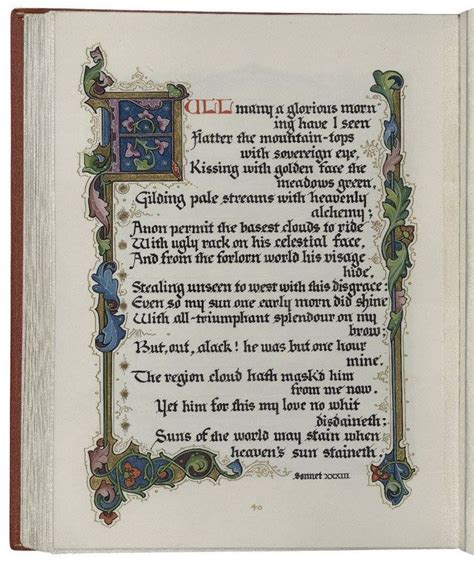 FULL
many a glorious morn
ing have I seen
Flatter the mountain-tops
with sovereign eye,
Kissing with golden face the
meadows green,
Gilding pale streams with heavenly
alchemy;
Anon permit the basest clouds to ride
With ugly rack on his celestial face,
And from the forlorn world his visage
hide,
Stealing unseen to west with this disgrace:
Even so my sun one early morn did shine
With all-triumphant splendour on my
brow;
But, out, alack! he was but one hour
mine,
The region cloud hath mask'd him
from me now.
Yet him for this my love no whit
disdaineth:
Suns of the world may stain when
heaven's sun staineth.
Sonnet XXXIII
40